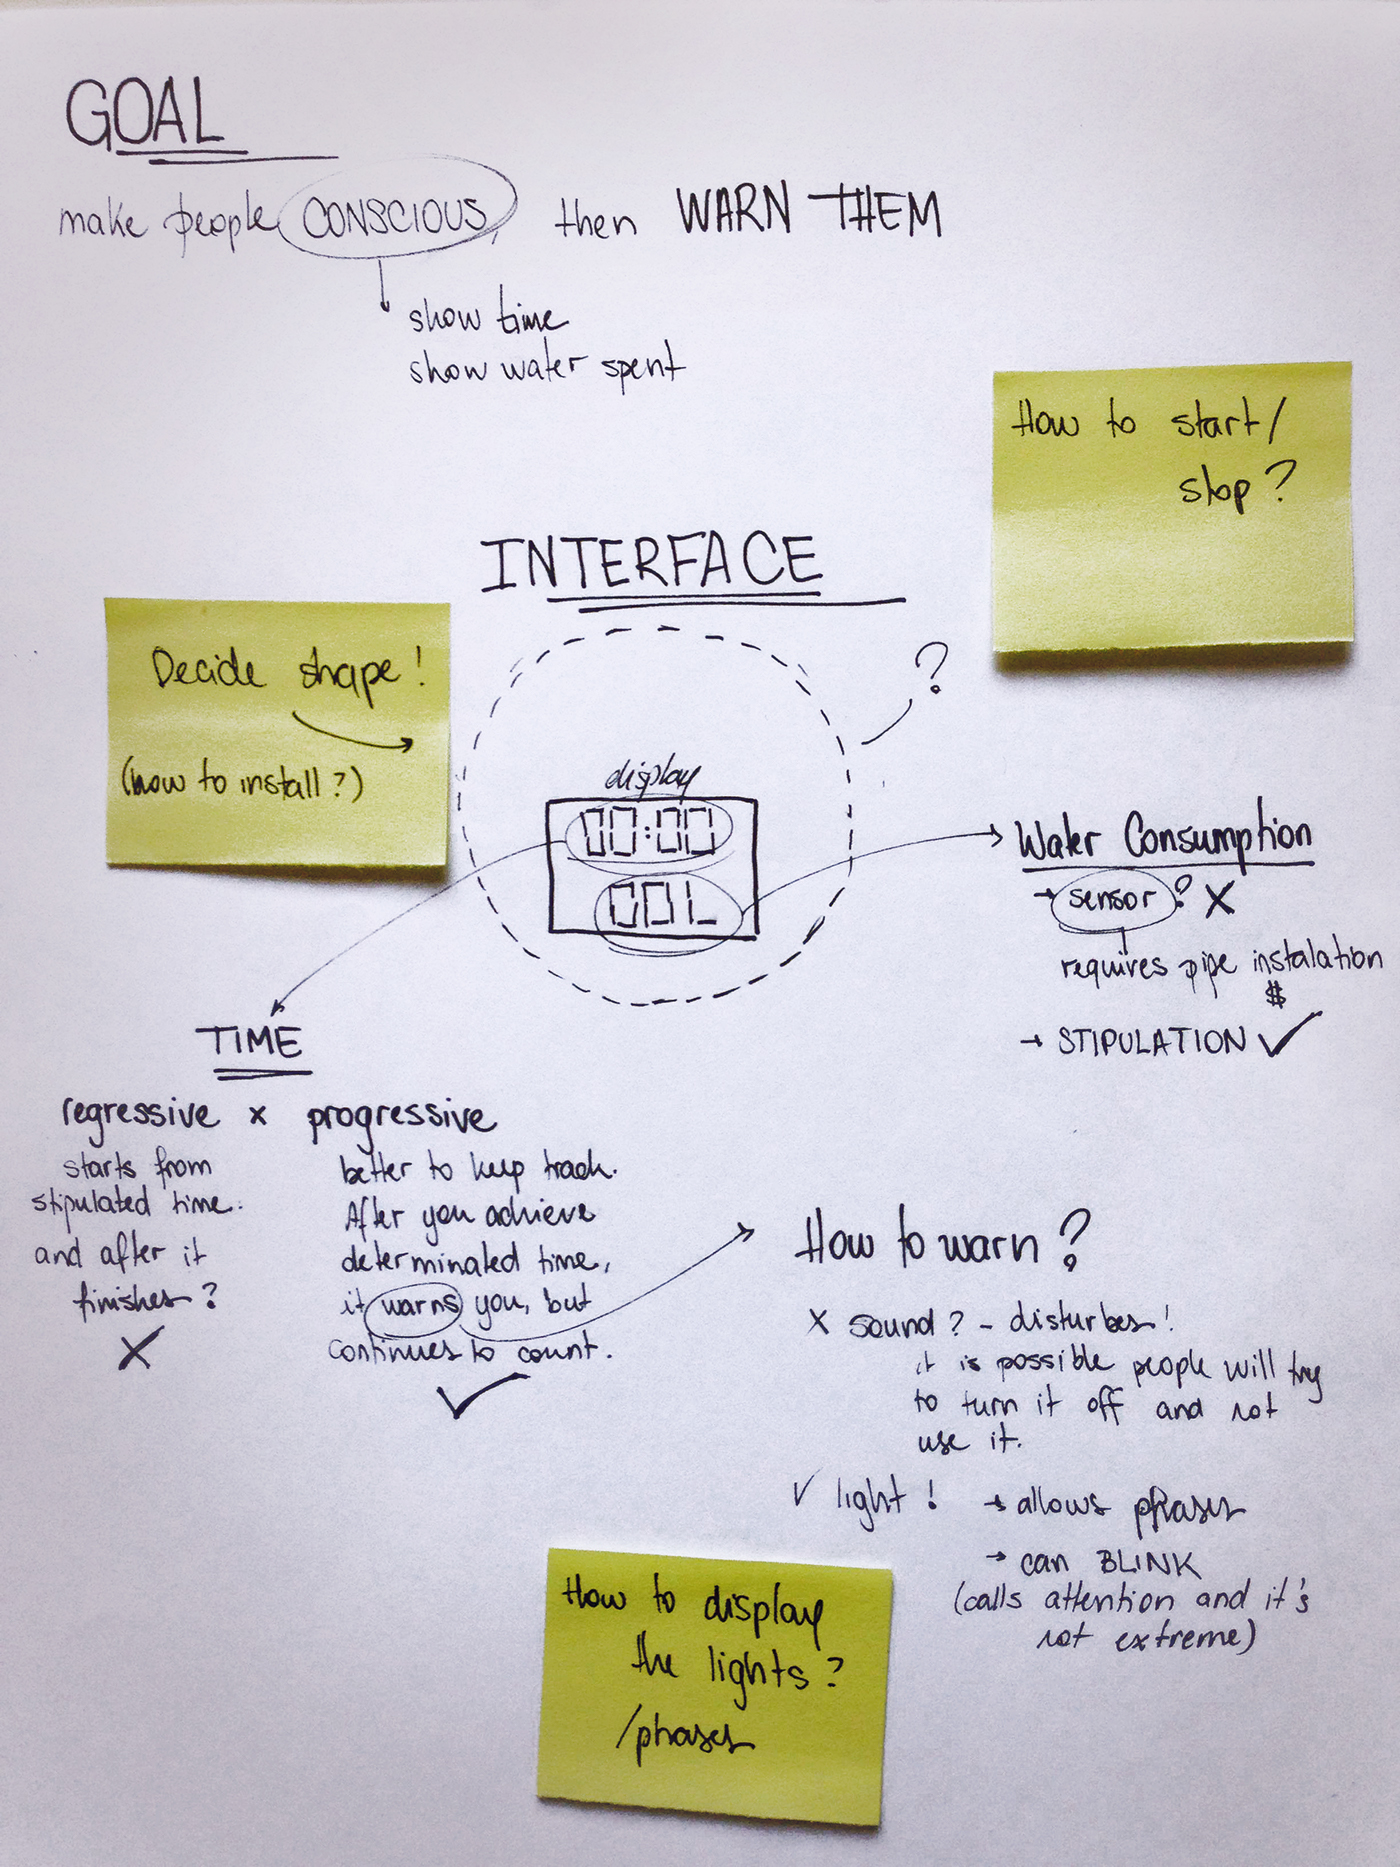 GOAL
make people CONSCIOUS, then WARN THEM
show time
show water spent
How to start/
stop?
INTERFACE
Decide shape!
(how to install?)
?
display
00:00
00L
Water Consumption
→ sensor? X
requires pipe instalation
$
→ STIPULATION ✓
TIME
regressive x progressive
starts from
stipulated time.
and after it
finishes?
X
better to keep track.
After you achieve
determinated time,
it warns you, but
continues to count.
✓
How to warn?
X sound? - disturbes!
it is possible people will try
to turn it off and not
use it.
✓ light! → allows phases
→ can BLINK
(calls attention and it's
not extreme)
How to display
the lights?
/phases